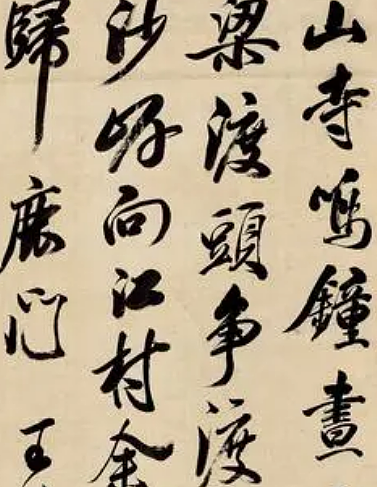 山寺鳴鐘晝
梁渡頭争渡
沙路向江村余
歸鹿門王